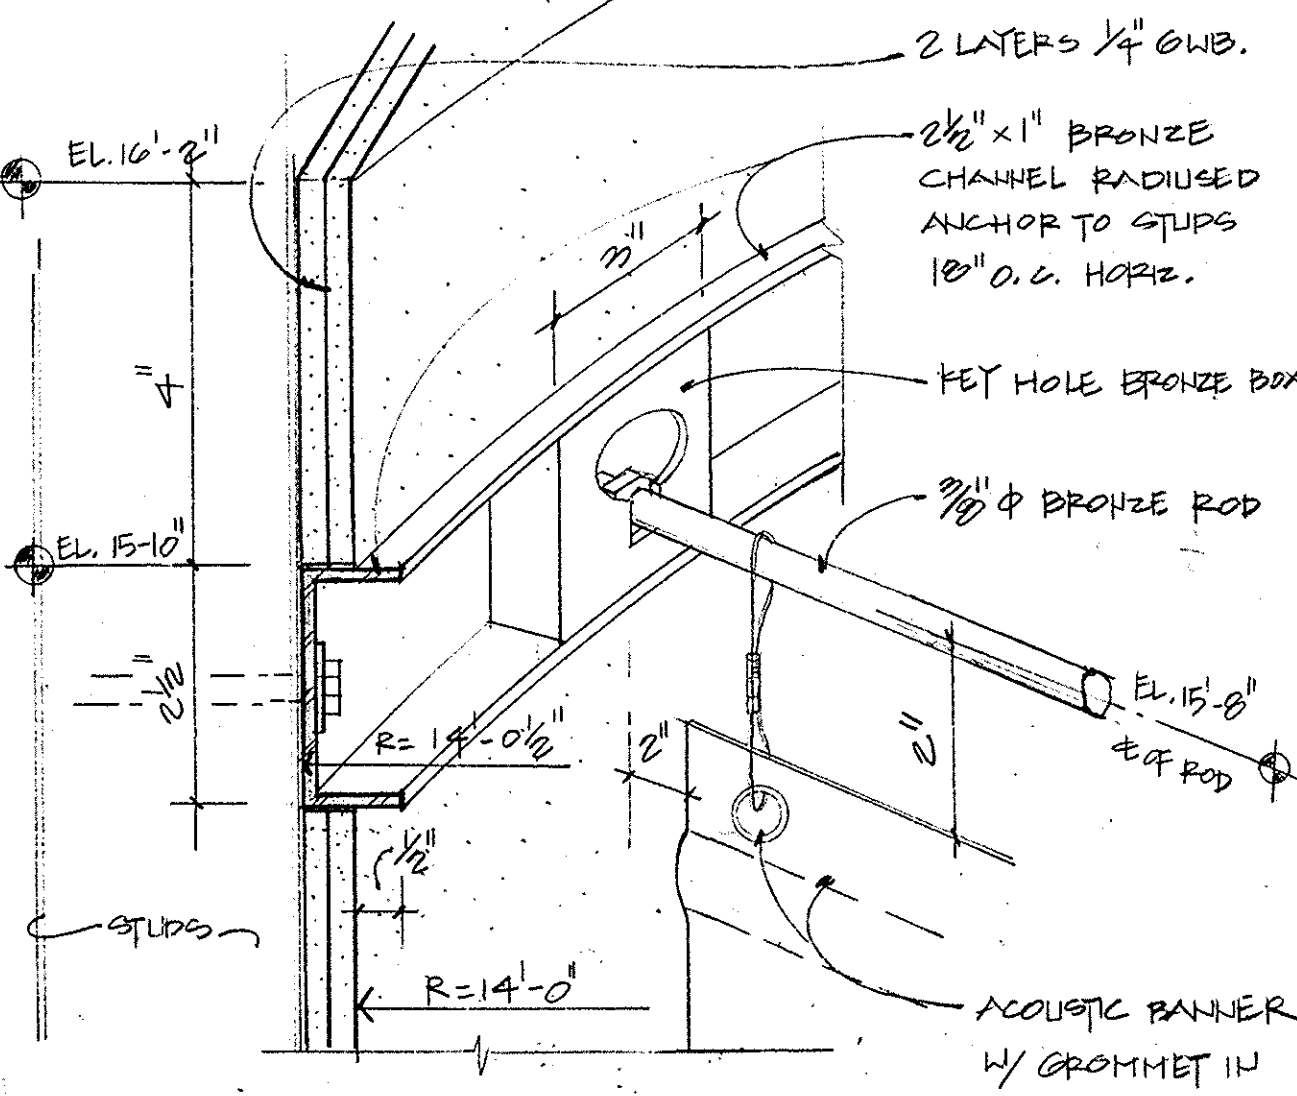 2 LAYERS 1/4" GWB.
EL. 16'-2"
2 1/2" x 1" BRONZE
CHANNEL RADIUSED
ANCHOR TO STUDS
18" O.C. HORIZ.
3"
4"
KEY HOLE BRONZE BOX
3/8" Φ BRONZE ROD
EL. 15-10"
2 1/2"
R= 14'-0 1/2"
2"
2"
EL. 15'-8"
℄ OF ROD
1/2"
STUDS
R=14'-0"
ACOUSTIC BANNER
W/ GROMMET IN